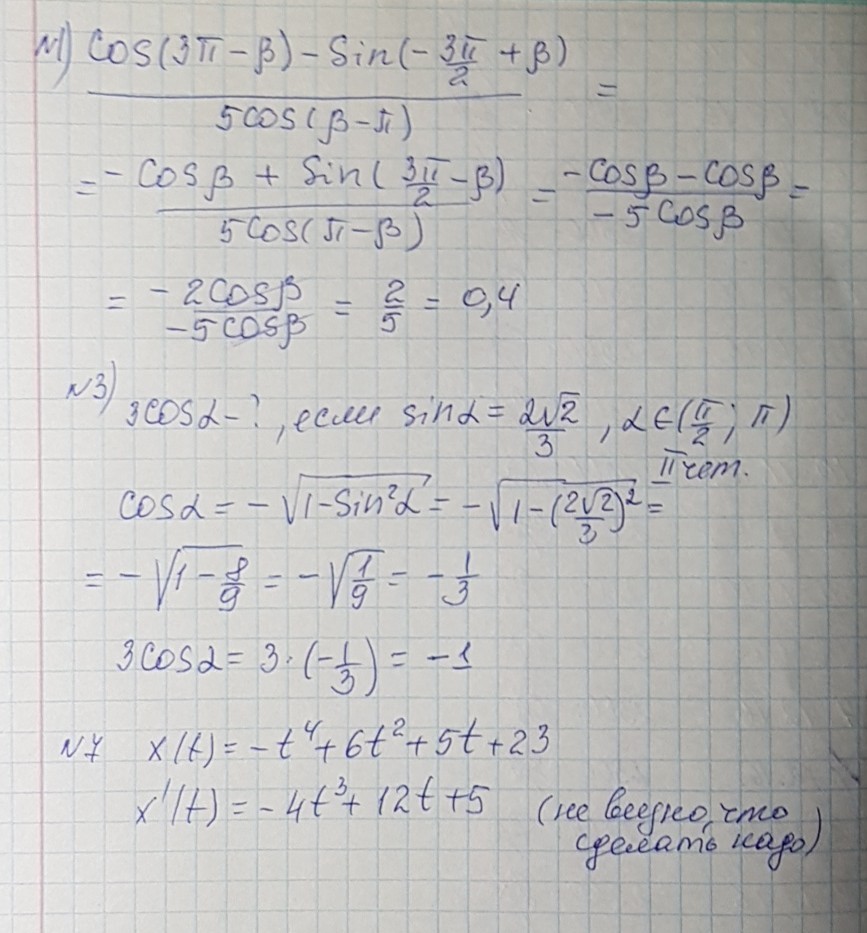 №1) cos(3π-β)-sin(-3π/2+β) / 5cos(β-π) =
= -cosβ + sin(3π/2-β) / 5cos(π-β) = -cosβ-cosβ / -5cosβ =
= -2cosβ / -5cosβ = 2/5 = 0,4
№3) 3cosα-?, если sinα = 2√2/3, α∈(π/2; π)
II чет.
cosα = -√(1-sin²α) = -√(1-(2√2/3)²) =
= -√(1-8/9) = -√(1/9) = -1/3
3cosα = 3·(-1/3) = -1
№7 x(t) = -t⁴+6t²+5t+23
x'(t) = -4t³+12t+5 (не видно, что
сделать надо)